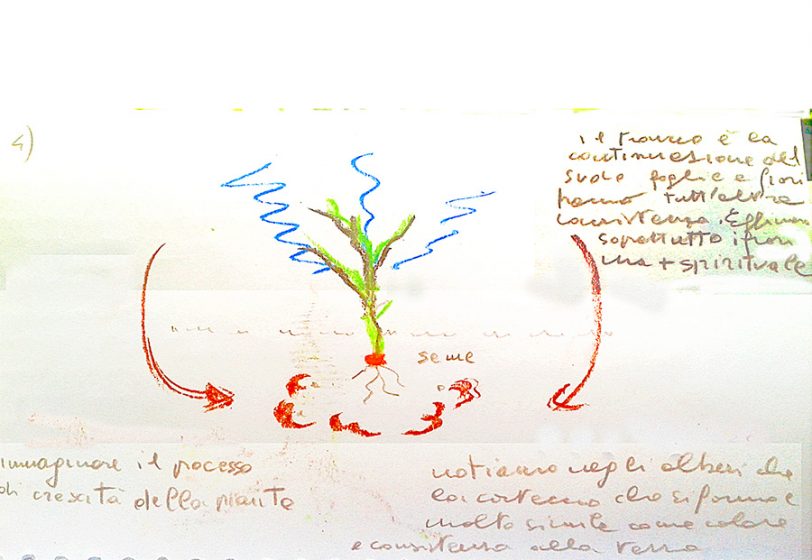 4)
il tronco è la
continuazione del
suolo foglie e fiori
hanno tutt'altra
consistenza.
soprattutto i fiori
una + spirituale
seme
immaginare il processo
di crescita della pianta
notiamo negli alberi che
la corteccia che si forma è
molto simile come colore
e consistenza alla terra